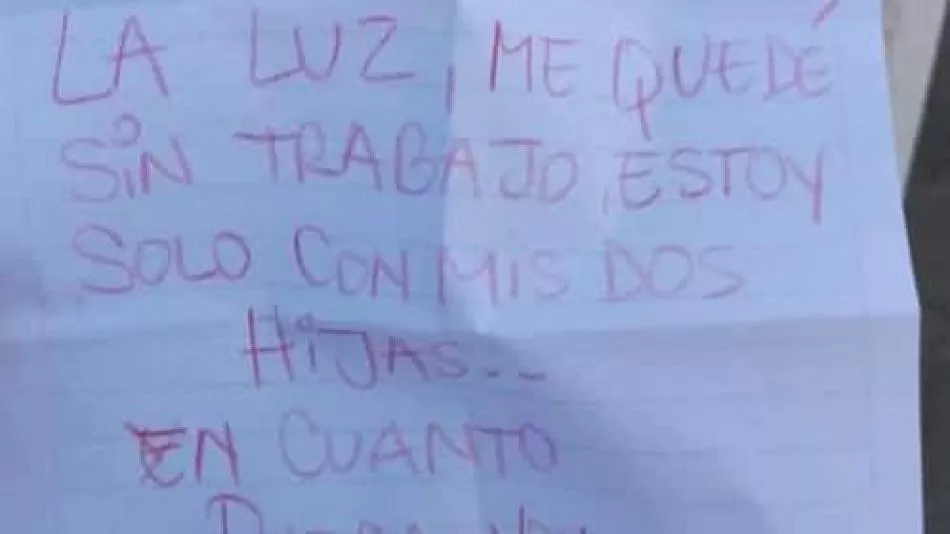 LA LUZ, ME QUEDÉ
SiN TRABAJO, ESTOY
SOLO CON MIS DOS
HiJAS...
EN CUANTO